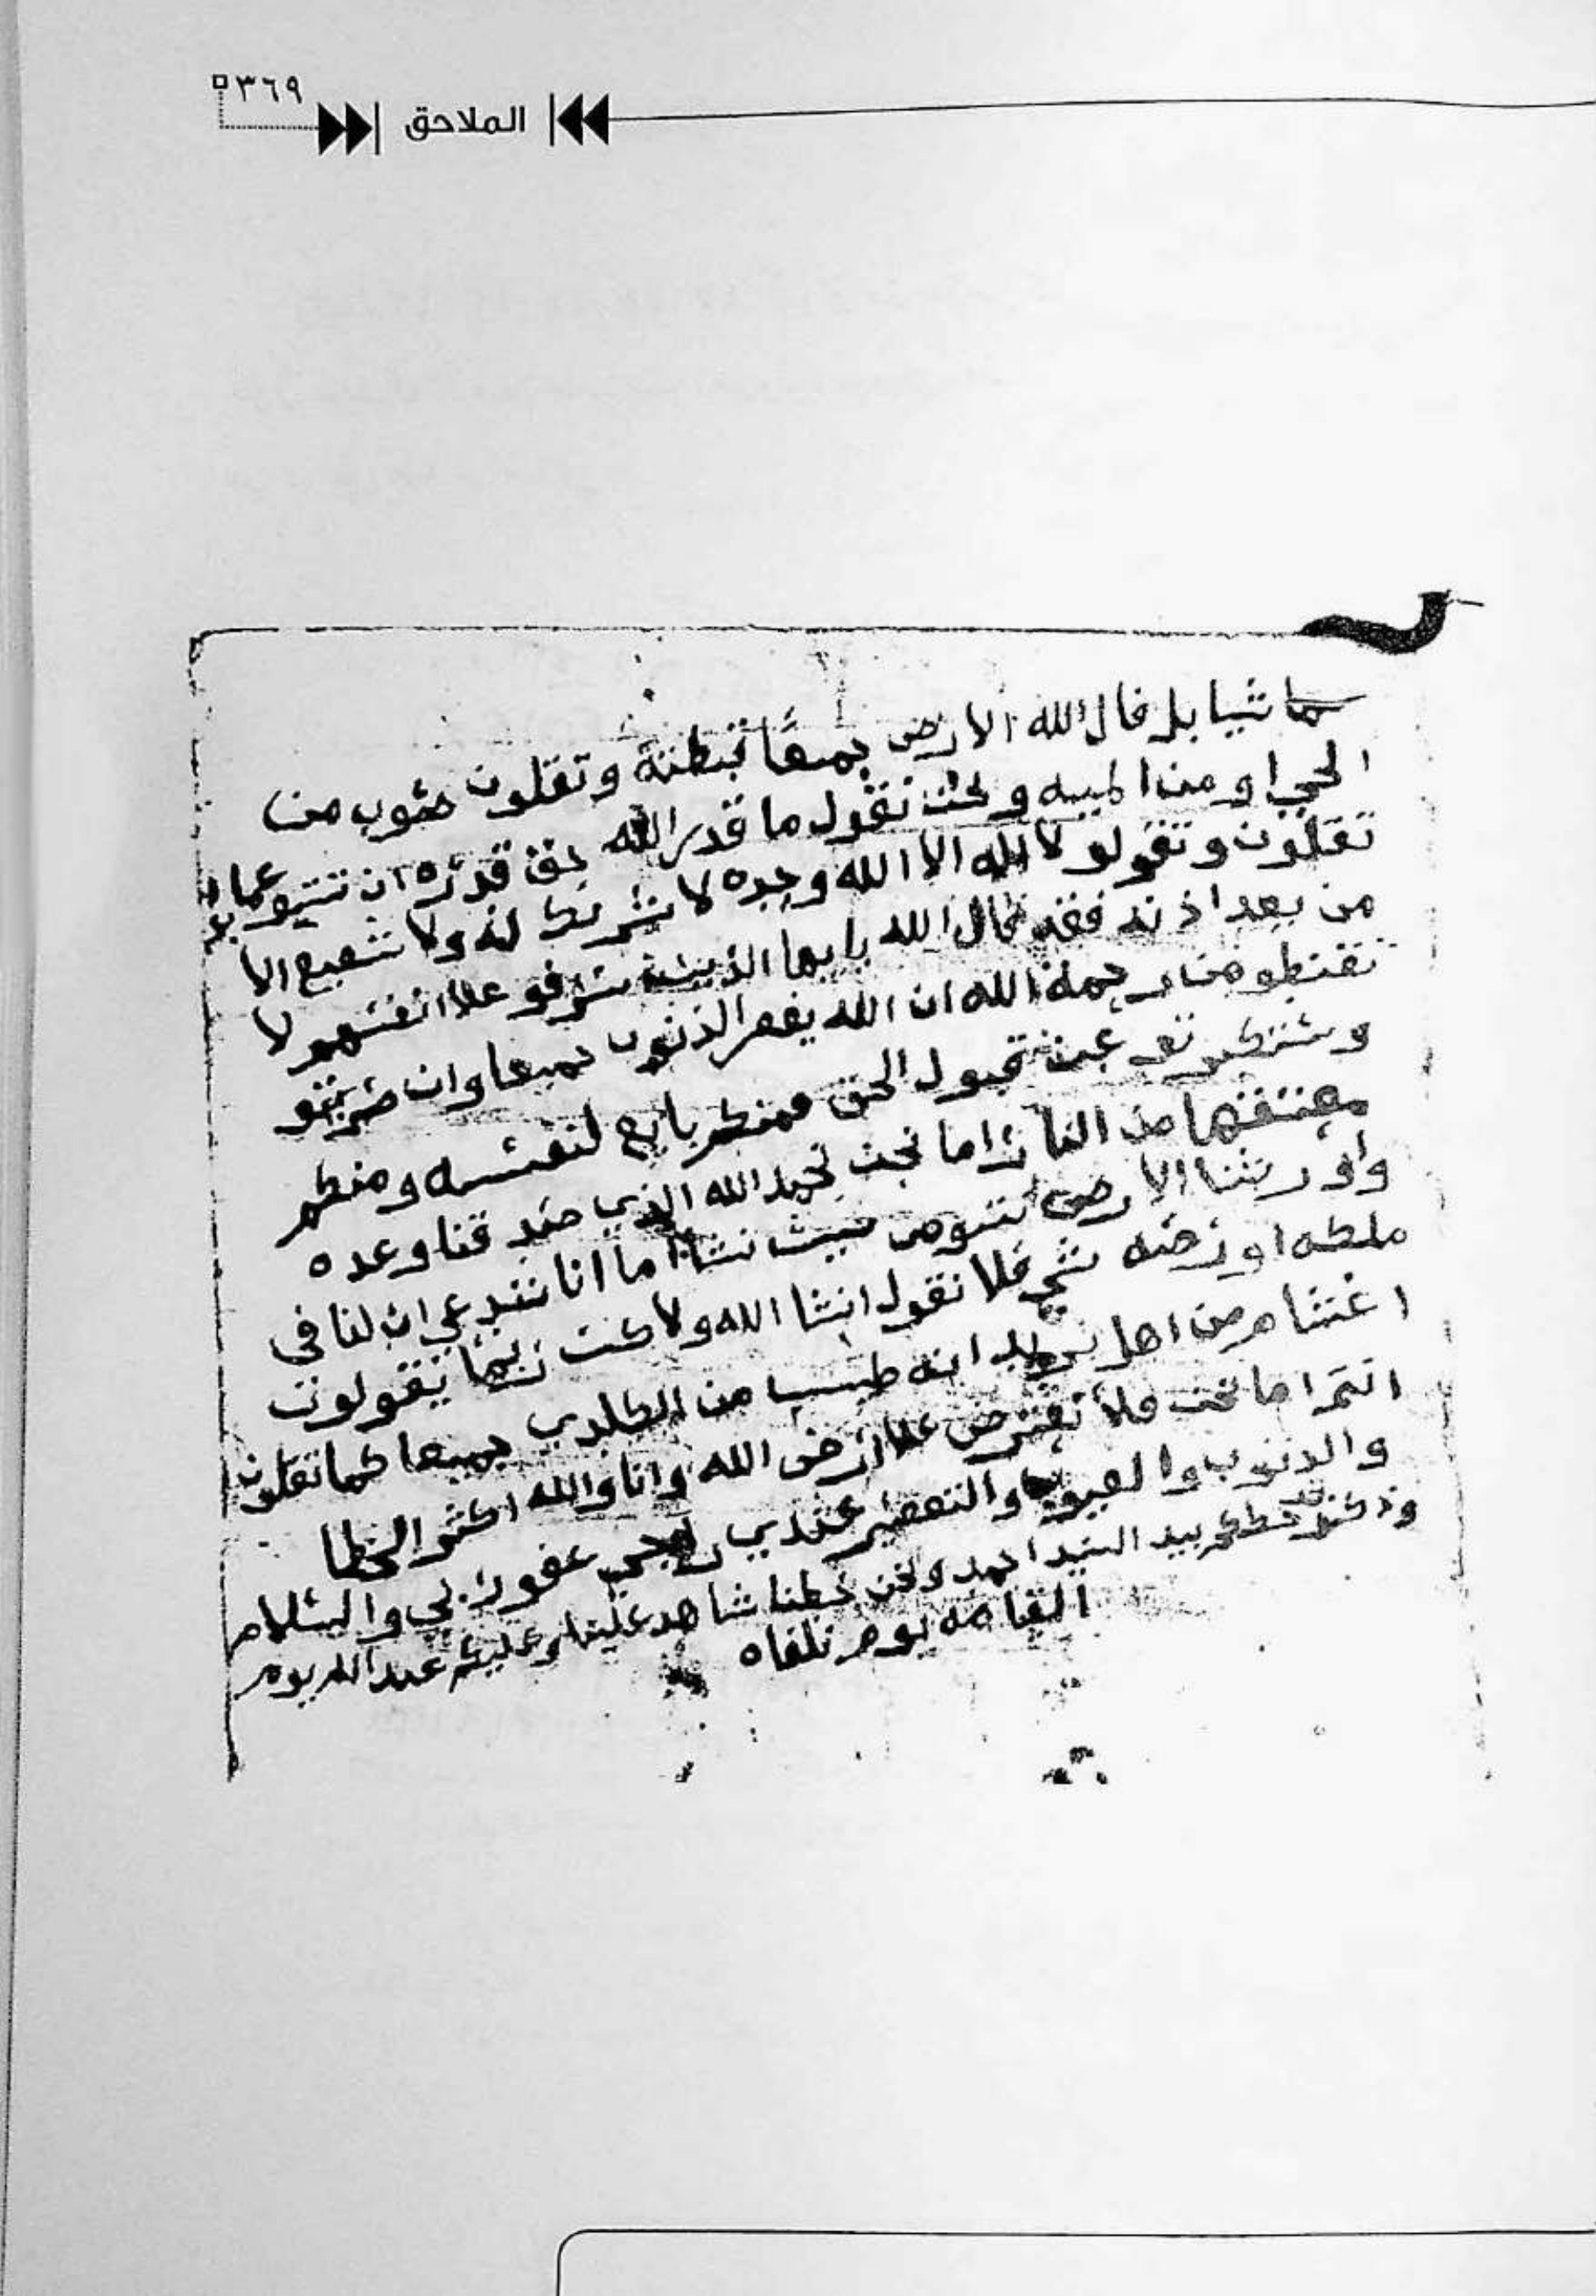 ٣٦٩
الملاحق
سما شيا بل قال الله الارض جميعًا قبطته وتقلون منوب من
الحي او من الميه ونحن نقول ما قدر الله حق قدره ان تتبو عما
تقلون وتقولو لا اله الا الله وحده لا شريك له ولا شفيع الا
من بعد اذنه فقد قال الله يا ايها الذين سرفو علا انفسهم لا
تقنطو من رحمة الله ان الله يغفر الذنوب جميعا وان
عن قبول الحق فمنكم بايع لنفسه ومنكم
معتقها من النار اما نحن نحمد الله الذي صدقنا وعده
واورثنا الارض نتبو من حيث نشا اما انا نندعي ان لنا في
ملكه او زخته شي فلا نقول انشا الله ولا كنت يقولون
من اهل انه طيب من جميعا كما تقلون
انتم اما نحن فلا نعترض علا ارض الله وانا والله اكثر الخطا
والذنوب والعيوب والتقصير عندي غفور ربي والسلام
خطكم بيد السيد احمد ونحن خطنا شاهد علينا وعليكم عبد الله يوم
القيامه يوم نلقاه